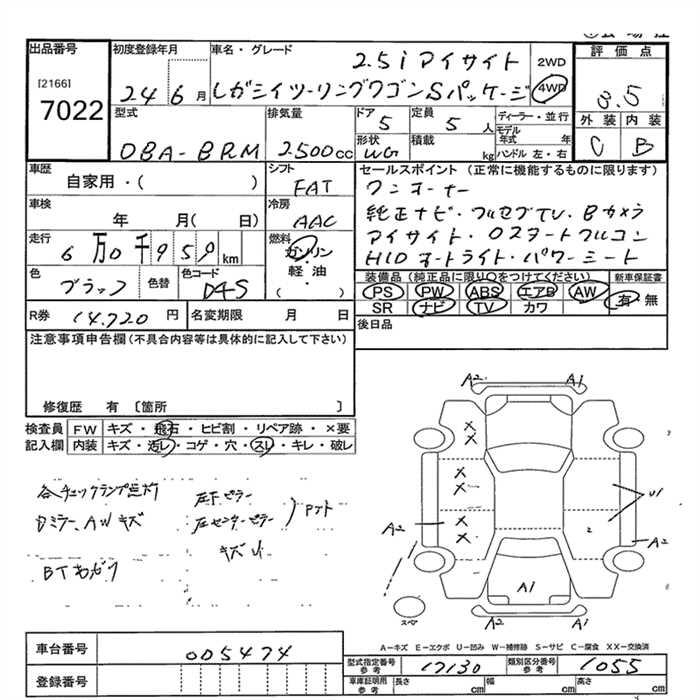 出品番号 初度登録年月 車名・グレード 2.5i アイサイト 2WD 評価点
[2166]
7022 24 6月 レガシイツーリングワゴンSパッケージ 4WD 3.5
型式 排気量 ドア 5 定員 5人 ディーラー・並行 外装 内装
モデル年式 年
DBA-BRM 2500cc 形状 WG 積載 kg ハンドル 左・右 C B
車歴 シフト セールスポイント (正常に機能するものに限ります)
自家用・( ) FAT ワンオーナー
車検 冷房 純正ナビ・フルセグTV・Bカメラ
年 月( 日) AAC アイサイト・
走行 燃料 HIDオートライト・パワーシート
6万0千950km ガソリン
軽・油
( )
色 色替 色コード 装備品(純正品に限り○をつけてください) 新車保証書
ブラック D4S PS PW ABS エアB AW 有・無
SR ナビ TV カワ
R券 14,720円 名変期限 月 日 後日品
注意事項申告欄(不具合内容等は具体的に記入して下さい)
修復歴 有 〔箇所 〕
検査員 FW キズ・飛石・ヒビ割・リペア跡・×要
記入欄 内装 キズ・汚レ・コゲ・穴・スレ・キレ・破レ
A2 A1
X
X
X
X
X
X
U1
A2 2 A2
A1
A2 A1
各チェックランプ点灯 左Fピラー
Dミラー、AWキズ 左センターピラー
キズU
スペア
A-キズ E-エクボ U-凹み W-補修跡 S-サビ C-腐食 XX-交換済
車台番号 005474 型式指定番号 参考 17130 類別区分番号 参考 1055
登録番号 車庫証明用 参考 長さ cm 幅 cm 高さ cm